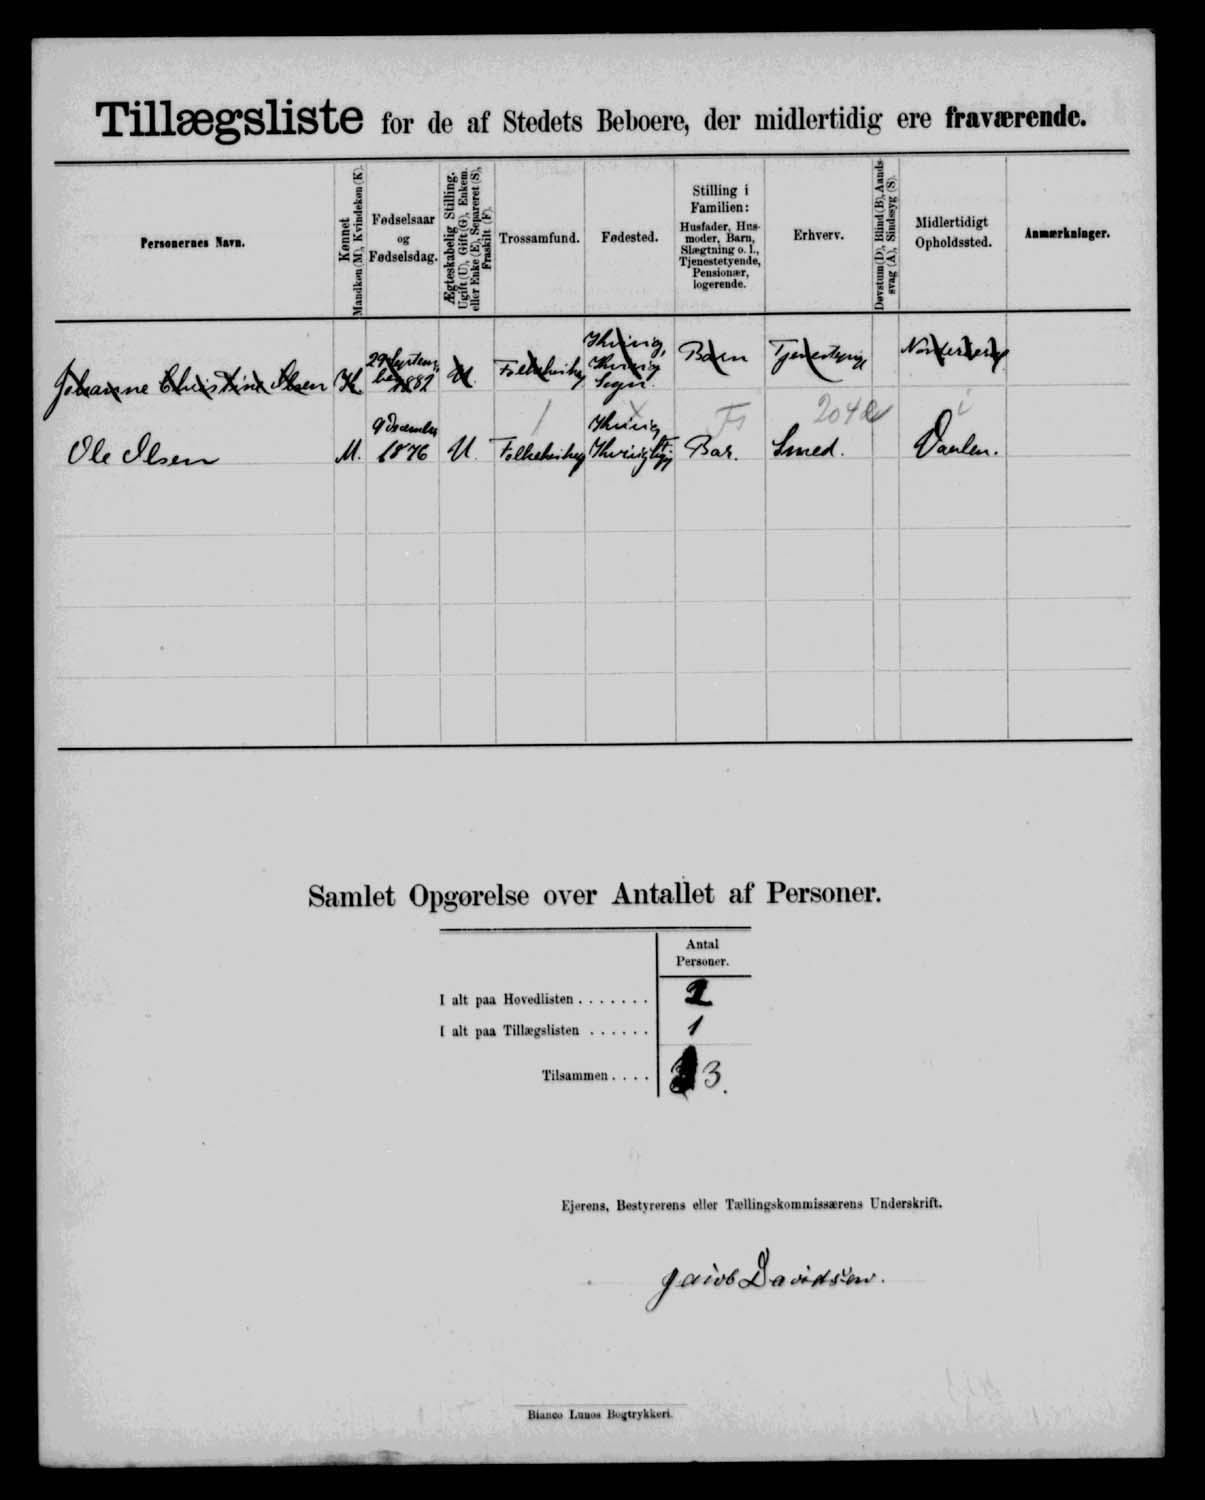 Tillægsliste for de af Stedets Beboere, der midlertidig ere fraværende.
Personernes Navn.
Kønnet
Mandkøn (M), Kvindekøn (K).
Fødselsaar
og
Fødselsdag.
Ægteskabelig Stilling.
Ugift (U), Gift (G), Enkem.
eller Enke (E), Separeret (S),
Fraskilt (F).
Trossamfund.
Fødested.
Stilling i
Familien:
Husfader, Hus-
moder, Barn,
Slægtning o. l.,
Tjenestetyende,
Pensionær,
logerende.
Erhverv.
Døvstum (D), Blind (B), Aands-
svag (A), Sindssyg (S).
Midlertidigt
Opholdssted.
Anmærkninger.
Johanne Christine Olsen K 29 1882 U. Barn
Ole Olsen M. 9 December 1876 U. Bar. Smed.
Samlet Opgørelse over Antallet af Personer.
Antal
Personer.
I alt paa Hovedlisten . . . . . . . 2
I alt paa Tillægslisten . . . . . . 1
Tilsammen . . . . 3.
Ejerens, Bestyrerens eller Tællingskommissærens Underskrift.
Jacob Davidsen.
Bianco Lunos Bogtrykkeri.